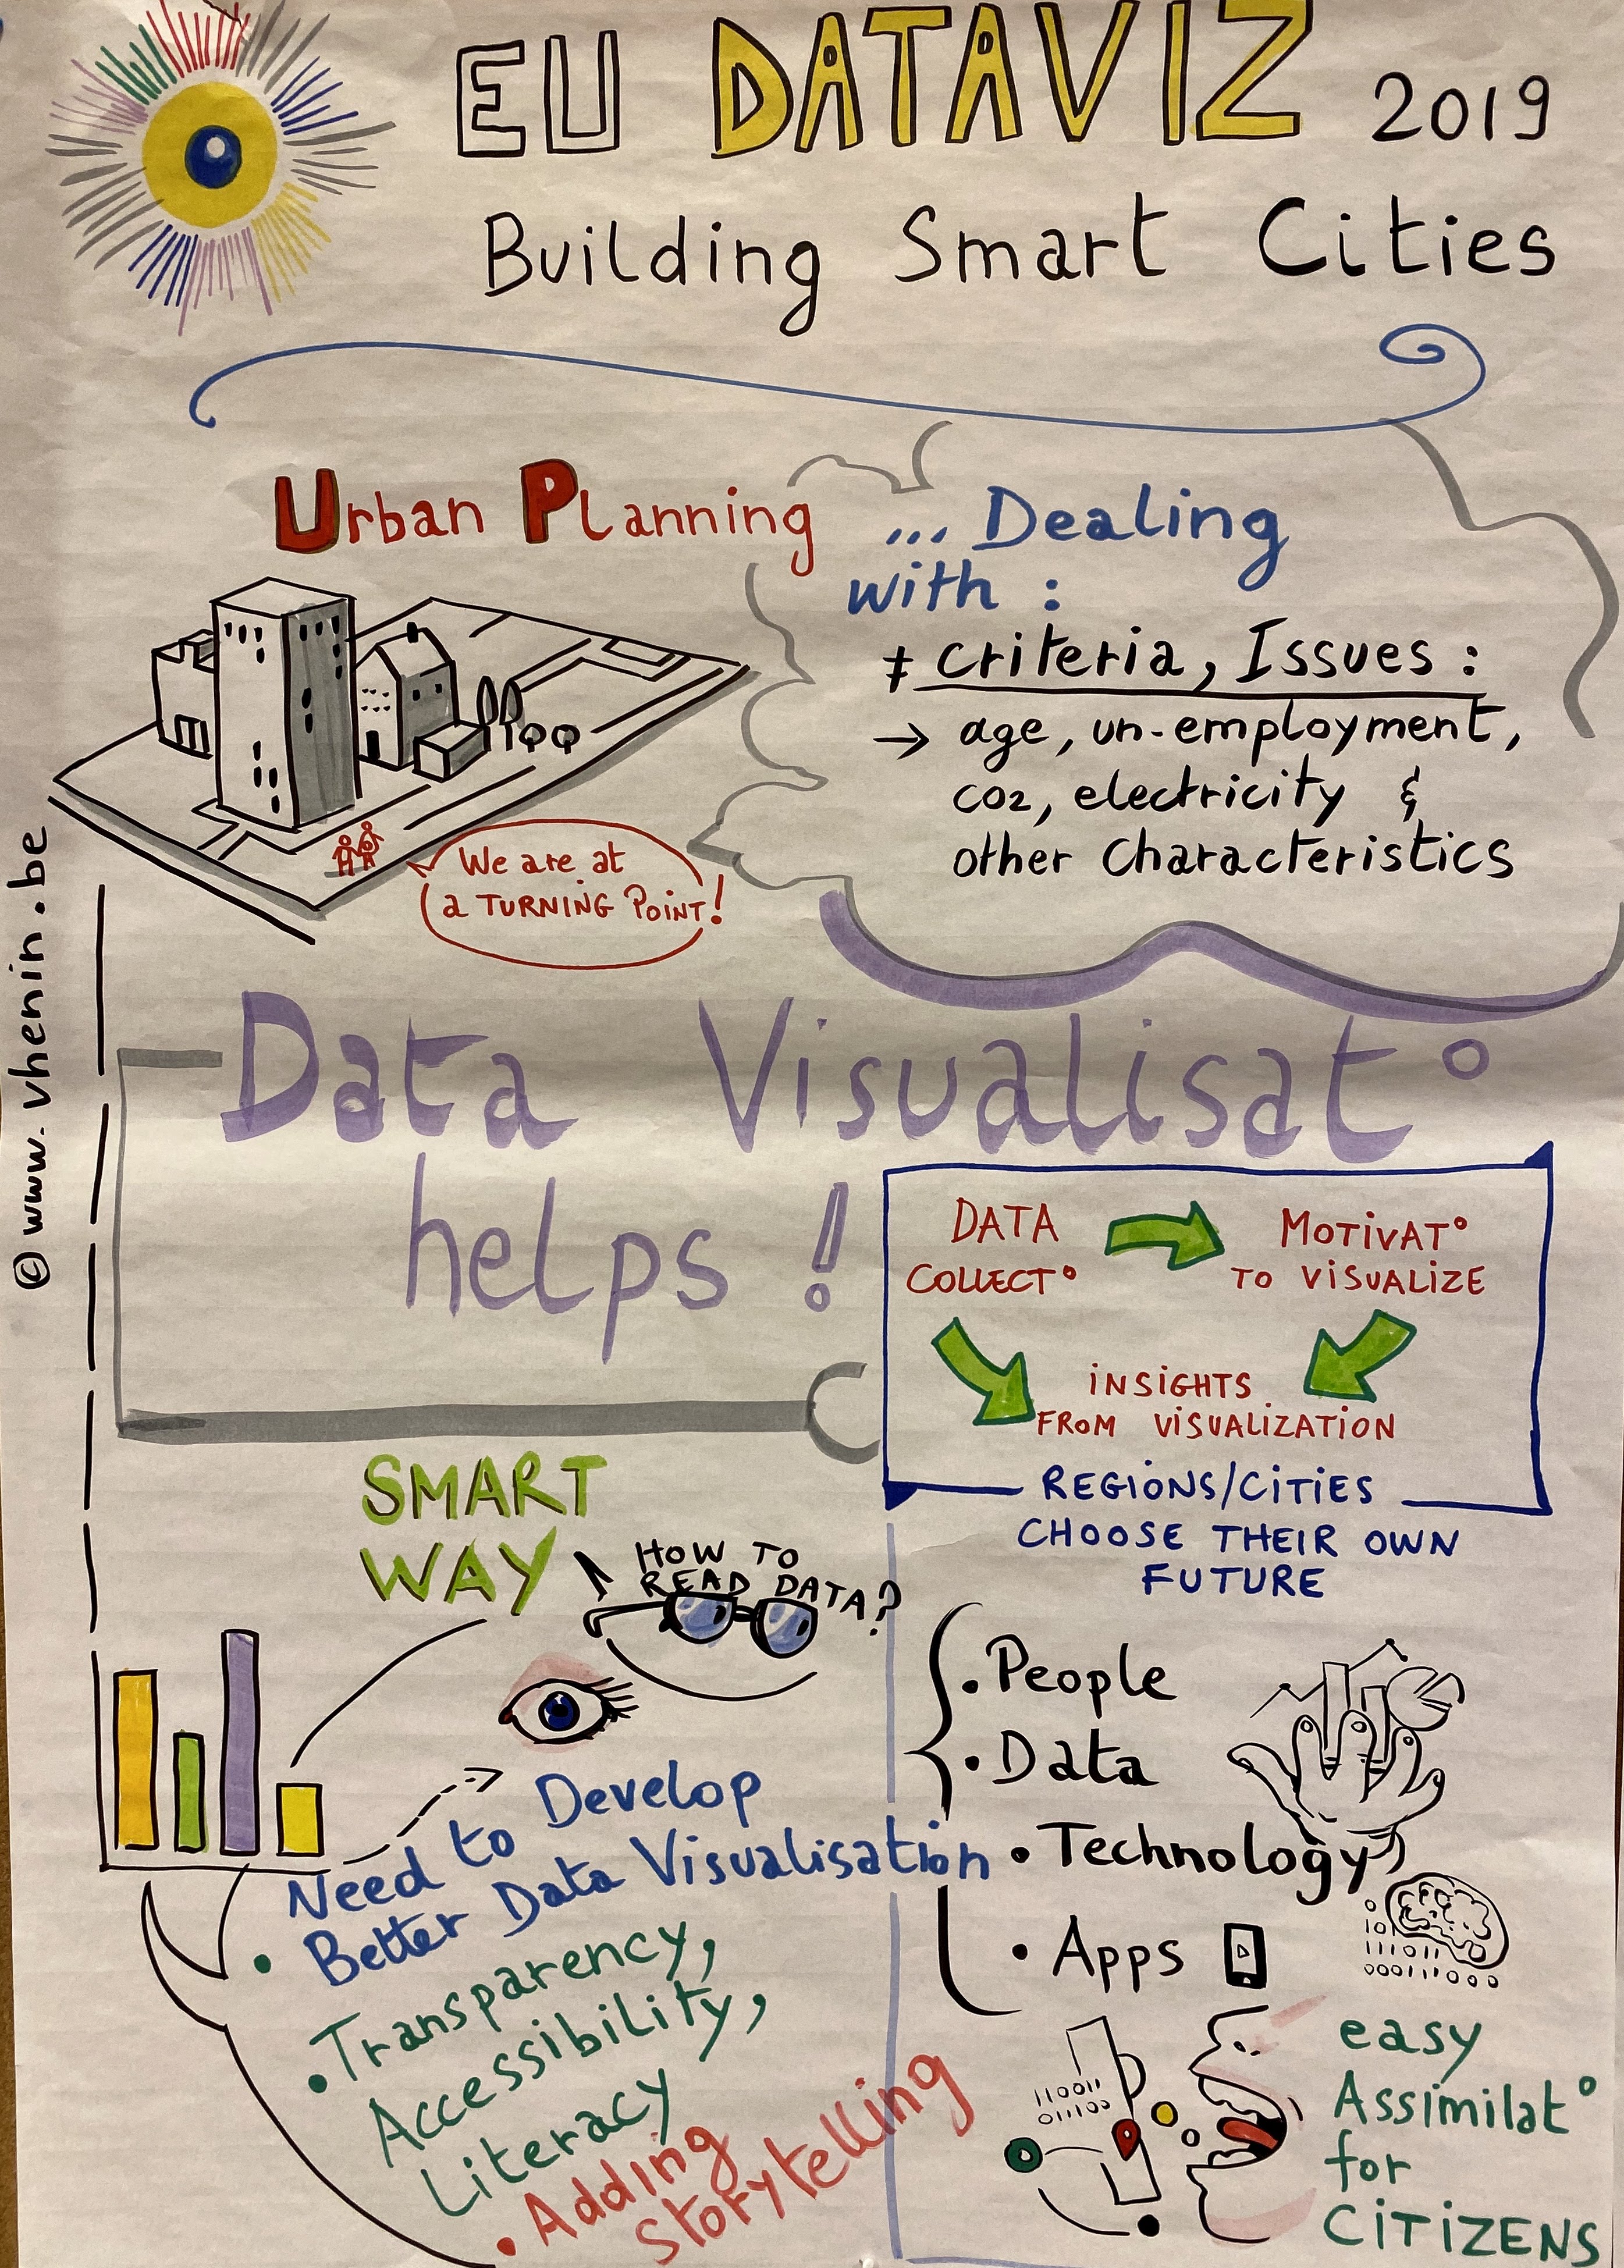 EU DATAVIZ 2019
Building Smart Cities
Urban Planning
... Dealing
with :
≠ criteria, Issues :
→ age, un-employment,
co2, electricity &
other characteristics
We are at
a TURNING POINT!
© www.vhenin.be
Data Visualisat°
helps !
DATA
COLLECT°
MOTIVAT°
TO VISUALIZE
INSIGHTS
FROM VISUALIZATION
REGIONS/CITIES
CHOOSE THEIR OWN
FUTURE
SMART
WAY
HOW TO
READ DATA?
Need to Develop
Better Data Visualisation
• Transparency,
Accessibility,
Literacy
• Adding
storytelling
• People
• Data
• Technology
• Apps
10
111011
000111000
110011
011100
easy
Assimilat°
for
CITIZENS